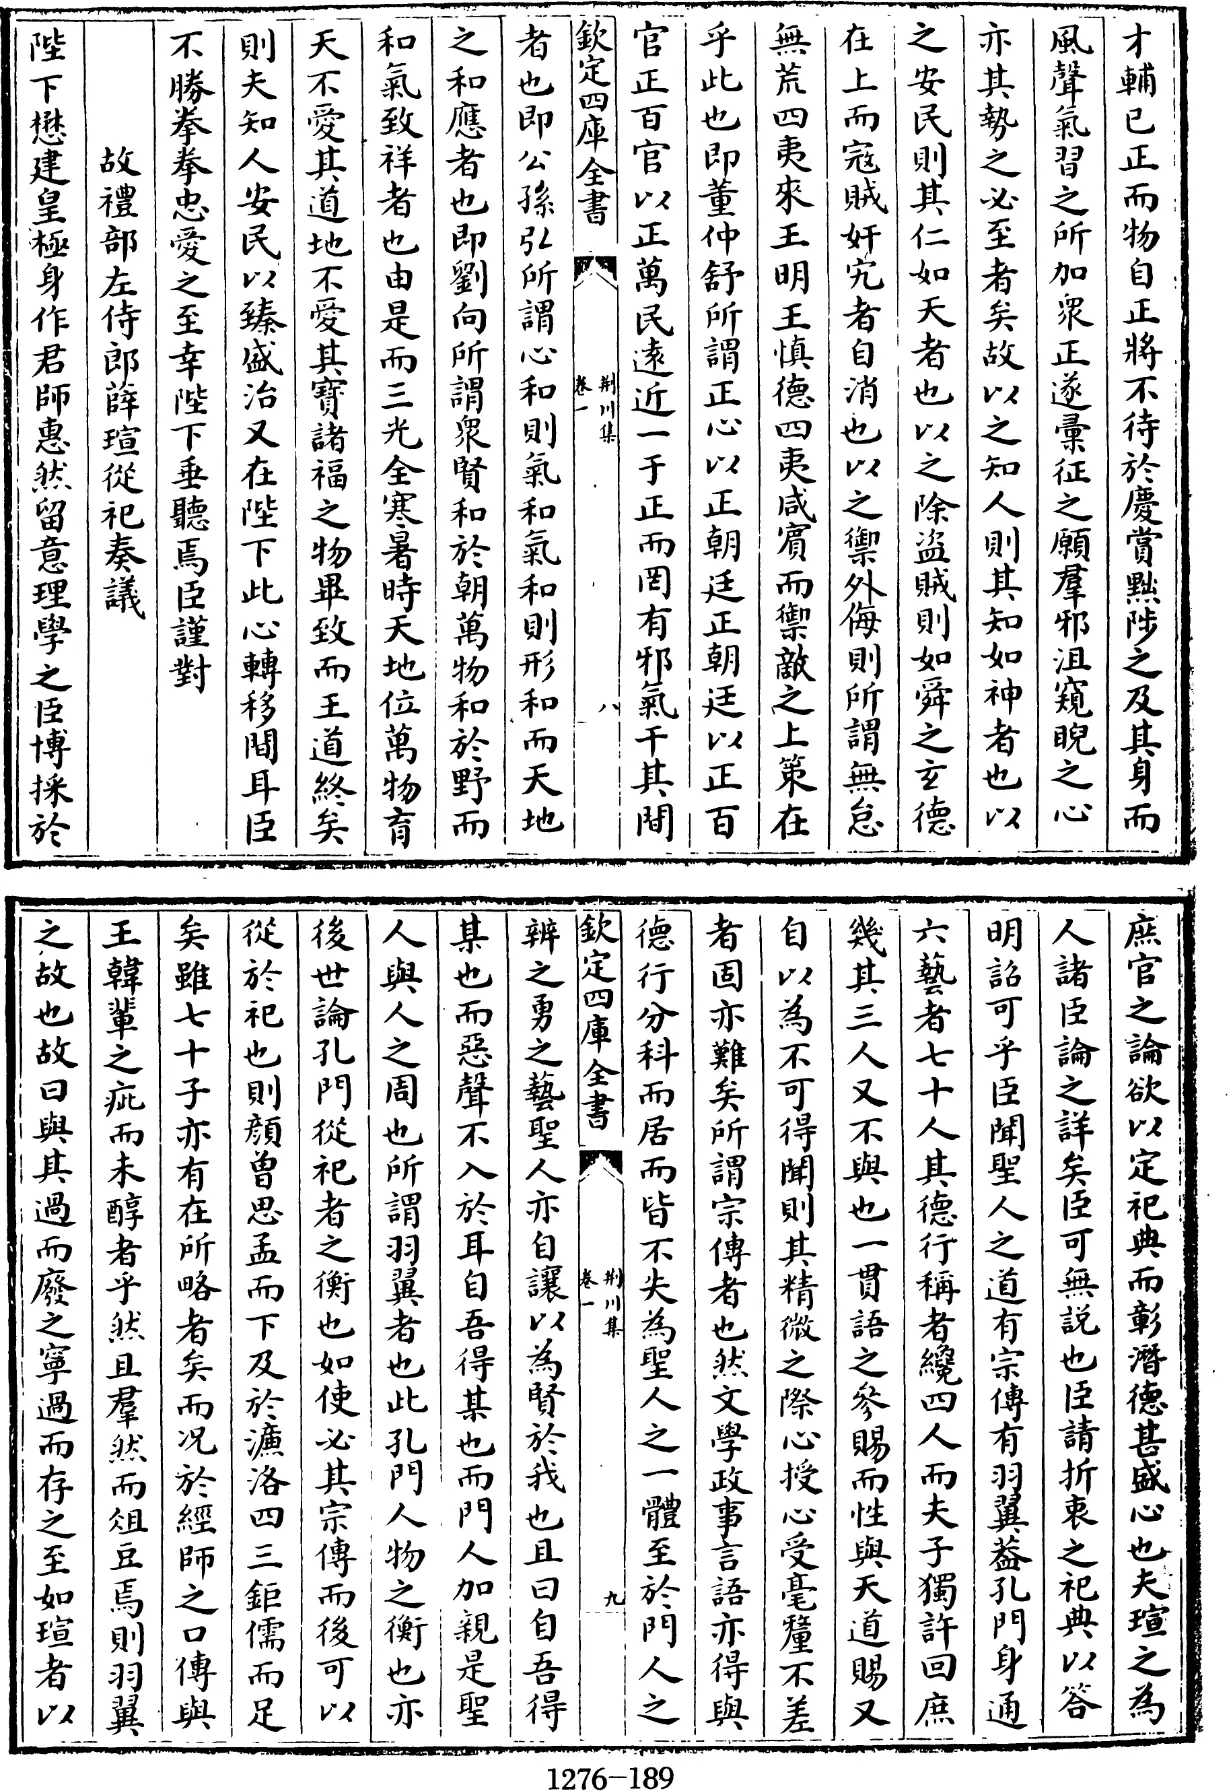 才輔已正而物自正將不待於慶賞黜陟之及其身而
風聲氣習之所加衆正遂彙征之願羣邪沮窺睨之心
亦其勢之必至者矣故以之知人則其知如神者也以
之安民則其仁如天者也以之除盜賊則如舜之玄德
在上而寇賊奸宄者自消也以之禦外侮則所謂無怠
無荒四夷來王明王慎德四夷咸賓而禦敵之上策在
乎此也即董仲舒所謂正心以正朝廷正朝廷以正百
官正百官以正萬民遠近一于正而罔有邪氣干其間
欽定四庫全書
荆川集
卷一
八
者也即公孫弘所謂心和則氣和氣和則形和而天地
之和應者也即劉向所謂衆賢和於朝萬物和於野而
和氣致祥者也由是而三光全寒暑時天地位萬物育
天不愛其道地不愛其寶諸福之物畢致而王道終矣
則夫知人安民以臻盛治又在陛下此心轉移間耳臣
不勝拳拳忠愛之至幸陛下垂聽焉臣謹對
故禮部左侍郎薛瑄從祀奏議
陛下懋建皇極身作君師惠然留意理學之臣博採於
庶官之論欲以定祀典而彰潛德甚盛心也夫瑄之為
人諸臣論之詳矣臣可無說也臣請折衷之祀典以答
明詔可乎臣聞聖人之道有宗傳有羽翼葢孔門身通
六藝者七十人其德行稱者纔四人而夫子獨許回庶
幾其三人又不與也一貫語之參賜而性與天道賜又
自以為不可得聞則其精微之際心授心受毫釐不差
者固亦難矣所謂宗傳者也然文學政事言語亦得與
德行分科而居而皆不失為聖人之一體至於門人之
欽定四庫全書
荆川集
卷一
九
辨之勇之藝聖人亦自讓以為賢於我也且曰自吾得
某也而惡聲不入於耳自吾得某也而門人加親是聖
人與人之周也所謂羽翼者也此孔門人物之衡也亦
後世論孔門從祀者之衡也如使必其宗傳而後可以
從於祀也則顏曽思孟而下及於濂洛四三鉅儒而足
矣雖七十子亦有在所略者矣而况於經師之口傳與
王韓輩之疵而未醇者乎然且羣然而俎豆焉則羽翼
之故也故曰與其過而廢之寧過而存之至如瑄者以
1276-189